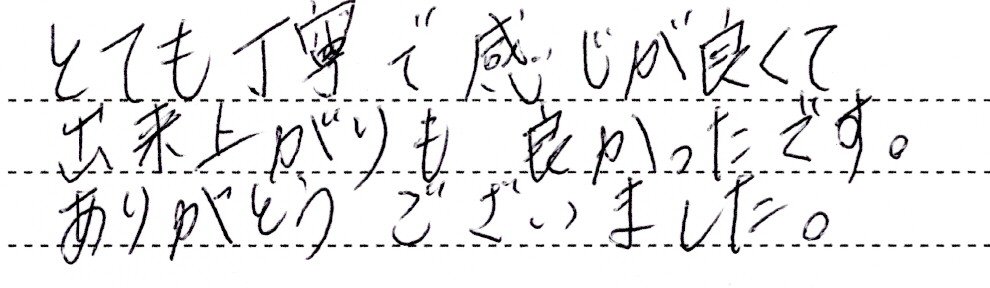 とても丁寧で感じが良くて
出来上がりも良かったです。
ありがとうございました。